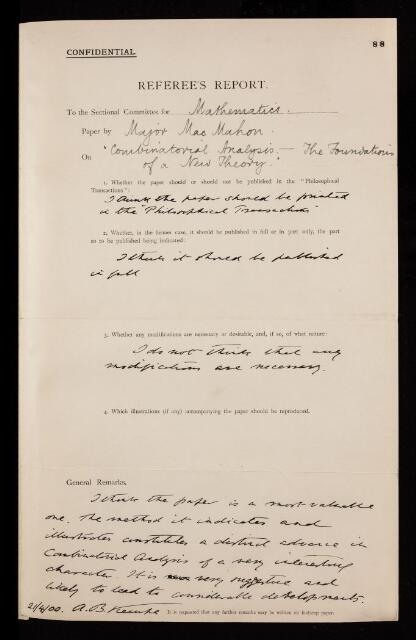 88
CONFIDENTIAL
REFEREE'S REPORT.
To the Sectional Committee for Mathematics.
Paper by Major Mac Mahon.
On "Combinatorial Analysis. — The Foundations
of a New Theory."
1. Whether the paper should or should not be published in the "Philosophical
Transactions":
I think the paper should be printed
in the "Philosophical Transactions"
2. Whether, in the former case, it should be published in full or in part only, the part
not to be published being indicated:
I think it should be published
in full
3. Whether any modifications are necessary or desirable, and, if so, of what nature:
I do not think that any
modifications are necessary.
4. Which illustrations (if any) accompanying the paper should be reproduced.
General Remarks.
I think the paper is a most valuable
one. The method it indicates and
illustrates constitutes a distinct advance in
Combinatorial Analysis of a very interesting
character. It is very suggestive and
likely to lead to considerable developments.
21/4/00. A. B. Kempe
It is requested that any further remarks may be written on foolscap paper.